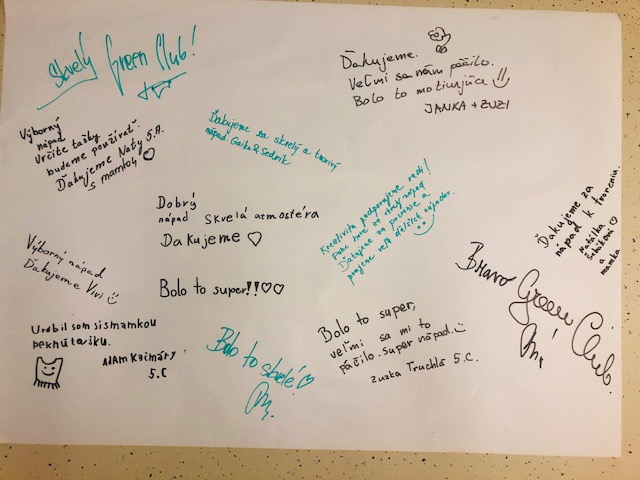 Skvelý Green Club!
Ďakujeme.
Veľmi sa nám páčilo.
Bolo to motivujúce
JANKA + ZUZI
Výborný
nápad
Určite tašky
budeme používať.
Ďakujeme Naty 5.A.
s mamkou
Ďakujeme za skvelý a tvorivý
nápad.
Dobrý
nápad skvelá atmosféra
Ďakujeme
Kreativitu podporujeme radi!
Ďakujeme za pozvanie a
prajeme veľa ďalších nápadov.
Ďakujeme za
nápad k tvoreniu.
a
mamka
Výborný nápad
Ďakujeme Vivi
Bolo to super!!
Bravo Green Club.
Urobil som si s mamkou
peknú tašku.
ADAM
5.C
Bolo to skvelé!
Bolo to super,
veľmi sa mi to
páčilo. super nápad.
Zuzka Truchlá 5.C.